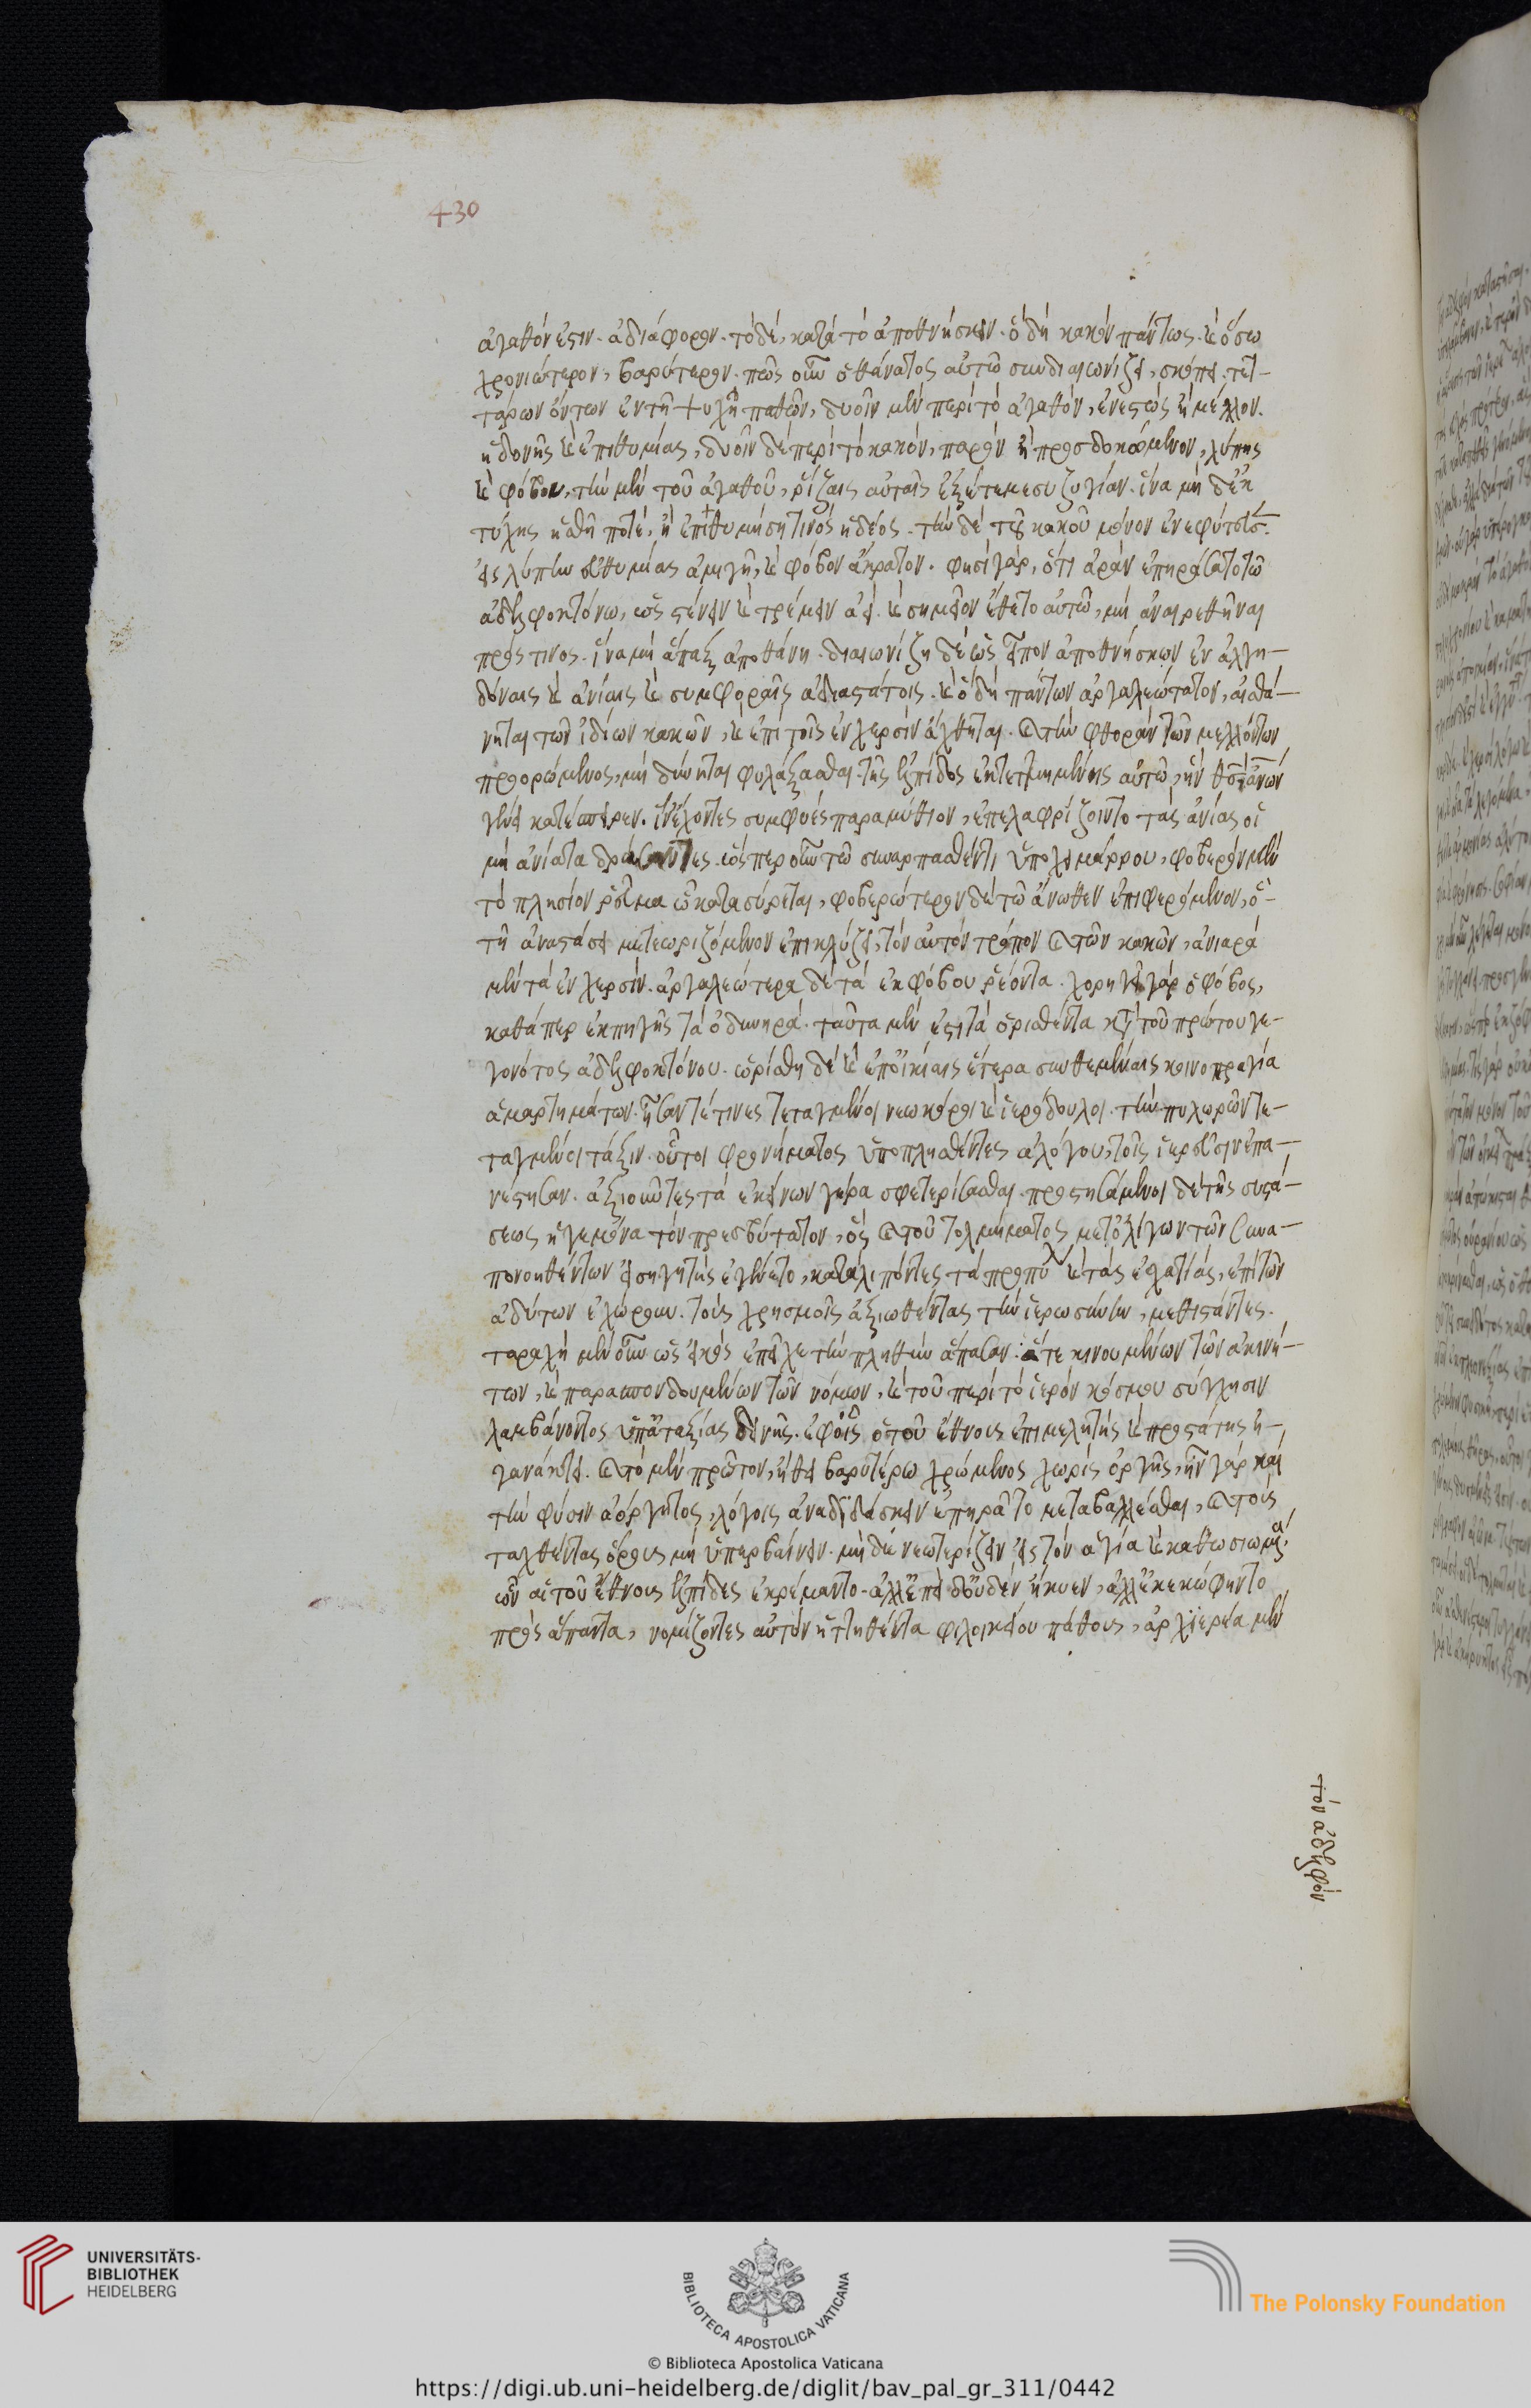 430
ἀγαθόν ἐστιν. ἀδιάφορον. τὸ δὲ, κατὰ τὸ ἀποθνήσκειν. ὃ δὴ κακὸν πάντως. καὶ ὅσω
χρονιώτερον, βαρύτερον. πῶς οὖν ὁ θάνατος αὐτῶ συνδιαιωνίζει, σκόπει. τετ-
τάρων ὄντων ἐν τῆ ψυχῆ παθῶν, δυοῖν μὲν περὶ τὸ ἀγαθὸν, ἐνεστὼς ἢ μέλλον.
ἡδονῆς καὶ ἐπιθυμίας, δυοῖν δὲ περὶ τὸ κακὸν, παρὸν ἢ προσδοκώμενον, λύπης
καὶ φόβου, τὴν μὲν τοῦ ἀγαθοῦ, ῥίζαις αὐταῖς ἐξέτεμε συζυγίαν. ἵνα μὴ δ' ἐκ
τύχης ἡσθῆ ποτὲ, ἢ ἐπιθυμήση τινὸς ἡδέος. τὴν δὲ τοῦ κακοῦ μόνον ἐνεφύτευσεν.
εἰς λύπην εὐθυμίας ἀμιγῆ, καὶ φόβον ἄκρατον. φησὶ γὰρ, ὅτι ἀρὰν ἐπηράσατο τῶ
ἀδελφοκτόνω, ὡς στένειν καὶ τρέμειν ἀεί. καὶ σημεῖον ἔθετο αὐτῶ, μὴ ἀναιρεθῆναι
πρός τινος. ἵνα μὴ ἅπαξ ἀποθάνη. διαιωνίζη δὲ ὡς εἶπον ἀποθνήσκων ἐν ἀλγη-
δόναις καὶ ἀνίαις καὶ συμφοραῖς ἀδιαστάτοις. καὶ ὃ δὴ πάντων ἀργαλεώτατον, αἰσθά-
νηται τῶν ἰδίων κακῶν, καὶ ἐπὶ τοῖς ἐν χερσὶν ἄχθηται. καὶ τὴν φθορὰν τῶν μελλόντων
προορώμενος, μὴ δύνηται φυλάξασθαι. τῆς ἐλπίδος ἐκτετμημένης αὐτῶ, ἣν θεὸς ἀνθρώπων
γένει κατέσπειρεν. ἵν' ἔχοντες συμφυὲς παραμύθιον, ἐπελαφρίζοιντο τὰς ἀνίας οἱ
μὴ ἀνίατα δράσαντες. ὥσπερ οὖν τῶ συναρπασθέντι ὑπὸ χειμάρρου, φοβερὸν μὲν
τὸ πλησίον ῥεῦμα ὧ κατασύρεται, φοβερώτερον δὲ τῶ ἄνωθεν ἐπιφερόμενον, ὃ
τῆ ἀναστάσει μετεωριζόμενον ἐπικλύζει, τὸν αὐτὸν τρόπον καὶ τῶν κακῶν, ἀνιαρὰ
μὲν τὰ ἐν χερσὶν. ἀργαλεώτερα δὲ τὰ ἐκ φόβου ῥέοντα. χορηγεῖ γὰρ ὁ φόβος,
καθάπερ ἐκ πηγῆς τὰ ὀδυνηρά. ταῦτα μὲν ἐστὶ τὰ ὁρισθέντα κατὰ τοῦ πρώτου γε-
γονότος ἀδελφοκτόνου. ὡρίσθη δὲ καὶ ἐπ' οἰκίαις ἕτερα συνθεμέναις κοινοπραγία
ἁμαρτημάτων. ἦσαν τέ τινες τεταγμένοι νεωκόροι καὶ ἱερόδουλοι. τὴν πυλωρῶν τε-
ταγμένοι τάξιν. οὗτοι φρονήματος ὑποπλησθέντες ἀλόγου, τοῖς ἱερεῦσιν ἐπα-
νέστησαν. ἀξιοῦντες τὰ ἐκείνων γέρα σφετερίσασθαι. προστησάμενοι δὲ τῆς συστά-
σεως ἡγεμόνα τὸν πρεσβύτατον, ὃς καὶ τοῦ τολμήματος μετ' ὀλίγων τῶν συνα-
πονοηθέντων εἰσηγητὴς ἐγένετο, καταλιπόντες τὰ προπύλ καὶ τὰς ἐσχατιὰς, ἐπὶ τῶν
ἀδύτων ἐχώρουν. τοὺς χρησμοῖς ἀξιωθέντας τὴν ἱερωσύνην, μεθιστάντες.
ταραχὴ μὲν οὖν ὡς εἰκὸς ἐπεῖχε τὴν πληθὺν ἅπασαν. ἅτε κινουμένων τῶν ἀκινή-
των, καὶ παρασπονδουμένων τῶν νόμων, καὶ τοῦ περὶ τὸ ἱερὸν κόσμου σύγχησιν
λαμβάνοντος ὑπ' ἀταξίας δεινῆς. ἐφ' οἷς ὁ τοῦ ἔθνους ἐπιμελητὴς καὶ προστάτης ἠ-
γανάκτει. καὶ τὸ μὲν πρῶτον, ἤθει βαρυτέρω χρώμενος χωρὶς ὀργῆς, ἦν γὰρ καὶ
τὴν φύσιν ἀόργητος, λόγοις ἀναδιδάσκειν ἐπειρᾶτο μεταβάλλεσθαι, καὶ τοὺς
ταχθέντας ὅρους μὴ ὑπερβαίνειν. μὴ δὲ νεωτερίζειν εἰς τὸν ἅγια καὶ καθωσιωμένα.
ὧν αἱ τοῦ ἔθνους ἐλπίδες ἐκρέμαντο. ἀλλ' ἐπεὶ δ' οὐδὲν ἤνυεν, ἀλλ' ἐκεκώφηντο
πρὸς ἅπαντα, νομίζοντες αὐτὸν ἡττηθέντα φιλοικείου πάθους, ἀρχιερέα μὲν
τὸν ἀδελφὸν
UNIVERSITÄTS-
BIBLIOTHEK
HEIDELBERG
BIBLIOTECA APOSTOLICA VATICANA
The Polonsky Foundation
© Biblioteca Apostolica Vaticana
https://digi.ub.uni-heidelberg.de/diglit/bav_pal_gr_311/0442